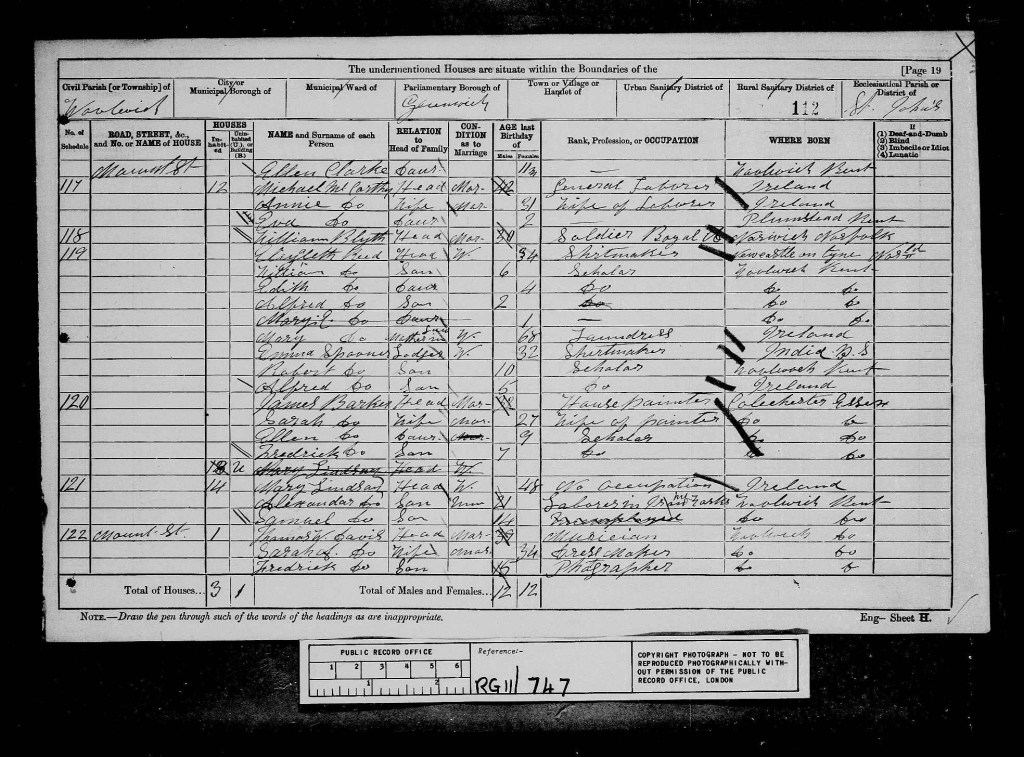 The undermentioned Houses are situate within the Boundaries of the
[Page 19
Civil Parish [or Township] of
City or Municipal Borough of
Municipal Ward of
Parliamentary Borough of
Town or Village or Hamlet of
Urban Sanitary District of
Rural Sanitary District of
Ecclesiastical Parish or District of
Woolwich
Greenwich
112
St. John's
No. of Schedule
ROAD, STREET, &c., and No. or NAME of HOUSE
HOUSES
Inhabited
Uninhabited (U.), or Building (B.)
NAME and Surname of each Person
RELATION to Head of Family
CONDITION as to Marriage
AGE last Birthday of
Males
Females
Rank, Profession, or OCCUPATION
WHERE BORN
If
(1) Deaf-and-Dumb
(2) Blind
(3) Imbecile or Idiot
(4) Lunatic
Mount St Ellen Clarke Daur — Woolwich Kent
117 12 Michael McCarthy Head Mar- 42 General Laborer Ireland
Annie Do Wife Mar- 31 Wife of Laborer Ireland
Eva Do Daur 2 Plumstead Kent
118 William Blyth Head Mar- Soldier Royal Norwich Norfolk
119 Reed Head W. 34 Shirtmaker Newcastle on Tyne
William Do Son 6 Scholar Woolwich Kent
Edith Do Daur 4 Do Do Do
Alfred Do Son 2 Do Do Do
Mary E. Do Daur 1 — Do Do
Mary Do W. 68 Laundress Ireland
Emma Spooner Lodger W. 32 Shirtmaker India B.S
Robert Do Son 10 Scholar Woolwich Kent
Alfred Do Son 5 Do Ireland
120 James Barker Head Mar- House painter Colchester Essex
Sarah Do Wife Mar- 27 Wife of painter Do Do
Ellen Do Daur 9 Scholar Do Do
Fredrick Do Son 7 Do Do Do
13 U Mary Lindsay Head W.
121 14 Mary Lindsay Head W. 48 No Occupation Ireland
Alexandar Do Son Unm 21 Laborer in Works Woolwich Kent
Samuel Do Son 14 Unemployed Do Do
122 Mount St. 1 Thomas W. Davis Head Mar- Musician Woolwich Do
Sarah Do Wife Mar- 34 Dress Maker Do Do
Fredrick Do Son 15 Phographer Do Do
Total of Houses... 3 1
Total of Males and Females... 12 12
NOTE.—Draw the pen through such of the words of the headings as are inappropriate.
Eng— Sheet H.
PUBLIC RECORD OFFICE
1 2 3 4 5 6
1 2
Reference:-
RG 11/747
COPYRIGHT PHOTOGRAPH - NOT TO BE
REPRODUCED PHOTOGRAPHICALLY WITH-
OUT PERMISSION OF THE PUBLIC
RECORD OFFICE, LONDON